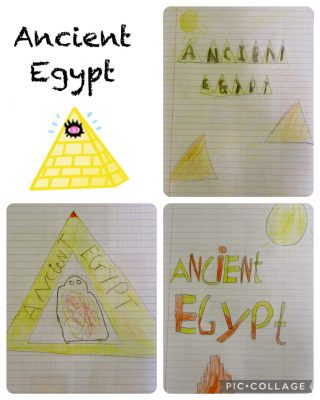 Ancient
Egypt
ANCIENT
EGYPT
ANCIENT EGYPT
ANCiENT
EGYPt
PIC•COLLAGE